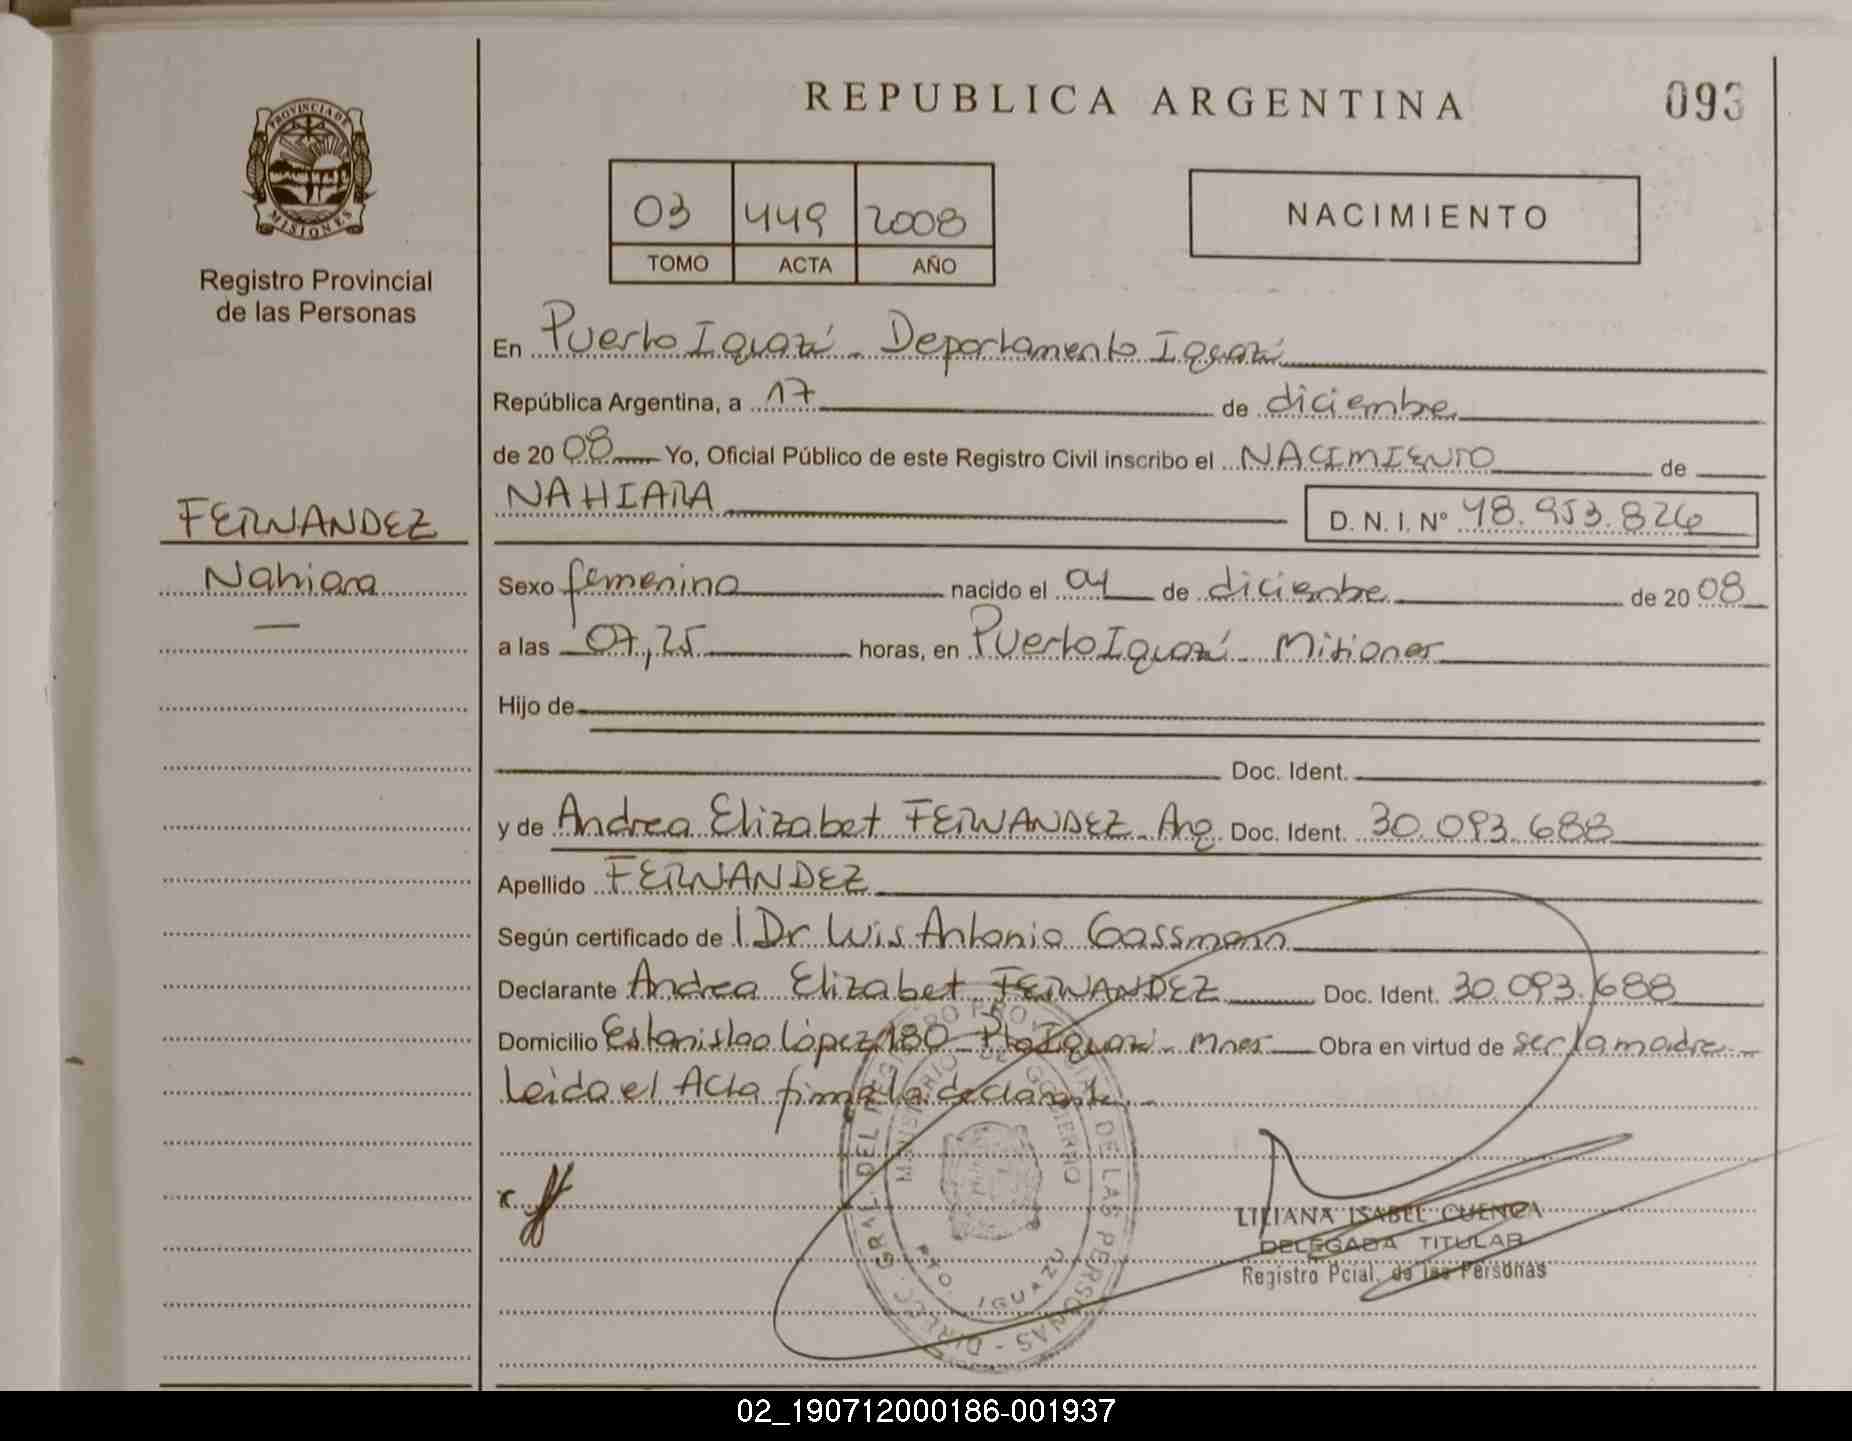 REPUBLICA ARGENTINA
093
PROVINCIA DE MISIONES
Registro Provincial
de las Personas
03 449 2008
TOMO ACTA AÑO
NACIMIENTO
En Puerto Iguazú - Departamento Iguazú
República Argentina, a 17 de diciembre
de 2008 Yo, Oficial Público de este Registro Civil inscribo el NACIMIENTO de
NAHIARA D. N. I. Nº 48.953.826
FERNANDEZ
Nahiara
—
Sexo femenino nacido el 04 de diciembre de 2008
a las 07,25 horas, en Puerto Iguazú - Misiones
Hijo de
Doc. Ident.
y de Andrea Elizabet FERNANDEZ - Arg. Doc. Ident. 30.093.688
Apellido FERNANDEZ
Según certificado de Dr. Luis Antonio Gassmann
Declarante Andrea Elizabet FERNANDEZ Doc. Ident. 30.093.688
Domicilio Estanislao López 180 - Pto Iguazú - Mnes Obra en virtud de ser la madre -
Leída el Acta firma la declarante -
x
DIREC. GRAL. DEL REGISTRO PROVINCIAL DE LAS PERSONAS -
MINISTERIO DE GOBIERNO
PTO. IGUAZU
LILIANA ISABEL CUENCA
DELEGADA TITULAR
Registro Pcial. de las Personas
02_190712000186-001937